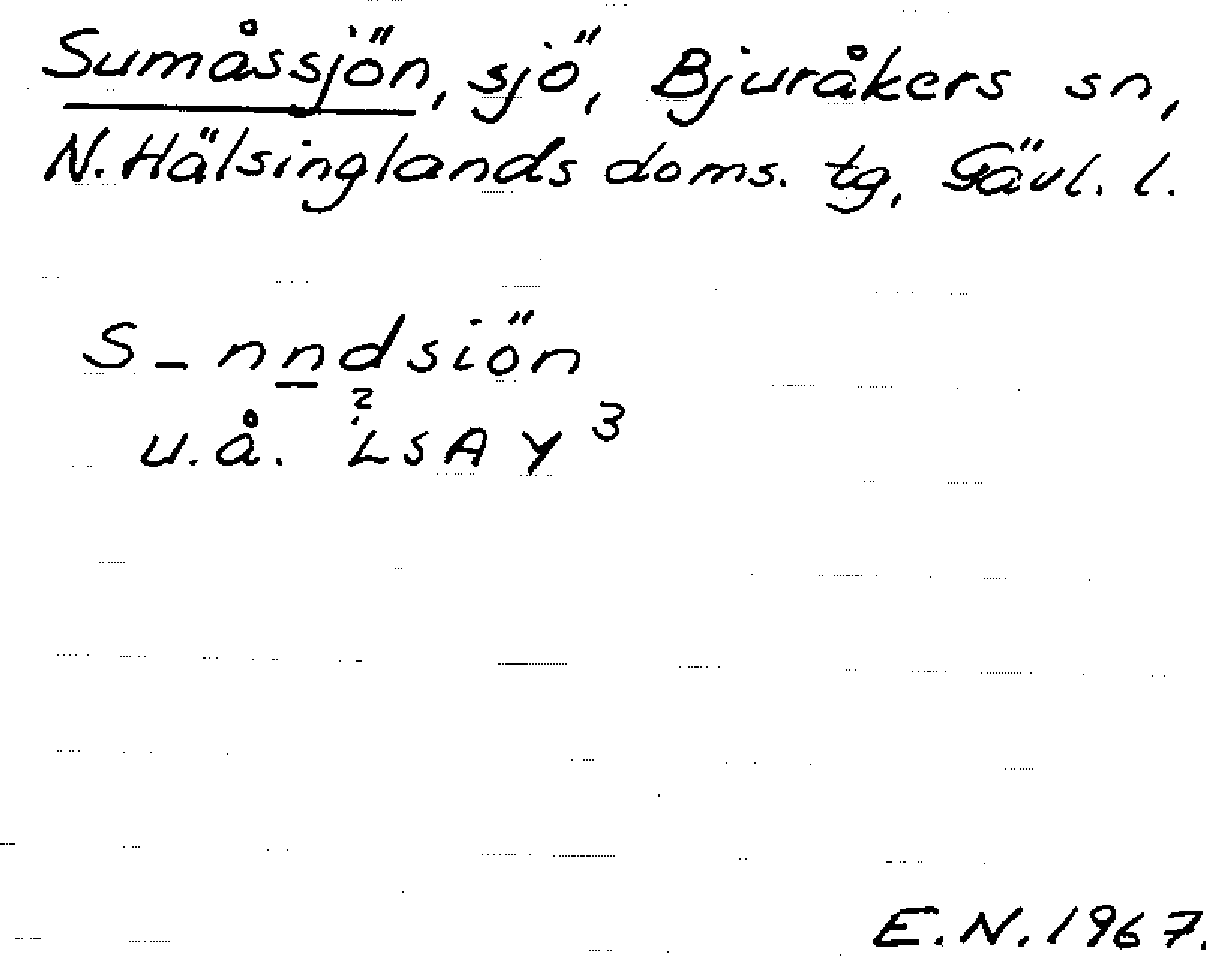 Sumåssjön, sjö, Bjuråkers sn,
N. Hälsinglands doms. tg, Gävl. l.
S_nndsiön
u.å. LSA Y³
E.N. 1967.